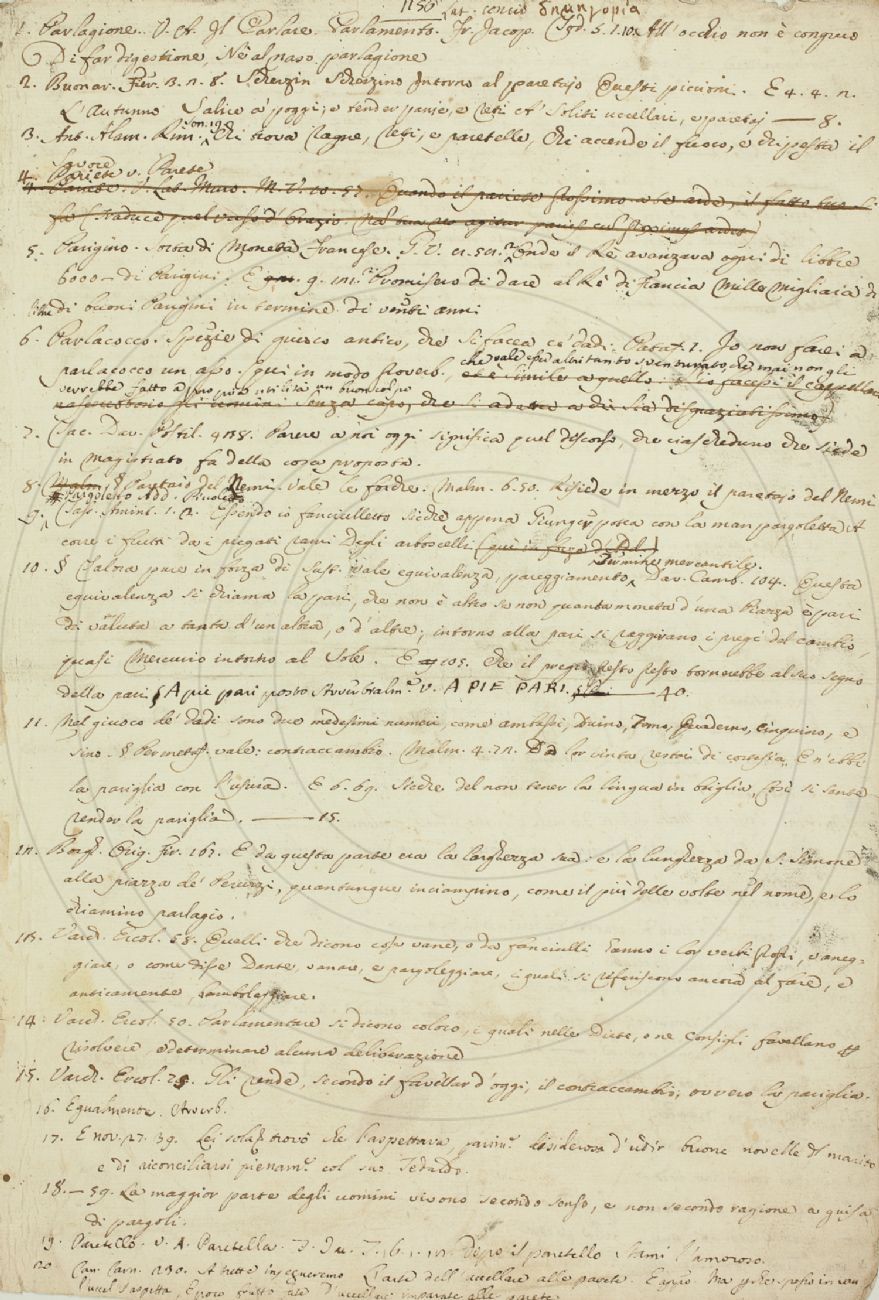 1156 Lat. concio δημηγορία
1. Parlagione. V. A. Il Parlare. Parlamento. Fr. Jacop. All' occhio non è congruo
Di far digestione, Nè al naso parlagione
2. Buonar. Fier. 3. 2. 8. Scherzin scherzino Intorno al paretajo Questi piccioni. E 4. 4. 2.
L'Autunno Salire a' poggj; e tender panie, e reti Et' Soliti uccellari, e paretaj — 8.
3. Ant. Alam. Rim. son. 19. Chi trova ragne, reti, e paretelle, Chi accende il fuoco, e chi pesta il
savore
4. Pariete v. Parete
Quando il pariete prossimo a te arde, il fatto tuo si
fa
5. Parigino. Sorta di Moneta Francese. G. V. Onde il Re avanzava ogni dì libbre
6000 di Parigini. E g. Promisero di dare al Re di Francia Mille Migliaia di
libre di buoni Parigini in termine di venti anni
6. Parlacocco. Spezie di giuoco antico, che si facea co' dadi. Pataf. 1. Io non farei a
parlacocco un asso. Qui in modo proverb. che vale esser altri tanto sventurato, che mai non gli
verrebbe fatto a suo pro un buon colpo
nascerebbono gli uomini senza capo, che si adatta a dir sia disgraziatissimo
7. Tac. Dav. Postil. 438. Parere a noi oggi significa quel discorso, che ciascheduno che siede
in magistrato fa della cosa proposta.
8. § Paretaio del Nemi. Vale le forche. Malm. 6. 50. Risiede in mezzo il paretajo del Nemi
Pargoletto Add.
9. Tass. Amint. 1. 2. Essendo io fanciulletto sicchè appena Giunger potea con la man pargoletta A
corre i frutti da i piegati rami Degli arboscelli
Termine mercantile.
10. § Talora pure in forza di Sust. vale equivalenza, pareggiamento. Dav. Camb. 104. Questa
equivalenza si chiama la pari, che non è altro se non quanta mneta d'una Piazza è pari
di valuta a tanta d'un'altra, o d'altre; intorno alla pari si raggirano i pregi del cambio,
quasi Mercurio intorno al Sole. E 105. Che il pregio presto presto tornerebbe al suo segno
della pari § A piè pari posto Avverbialm.e v. A PIE PARI. — 40.
11. Nel giuoco de' dadi sono due medesimi numeri, come ambassi, Duino, Terno, Quaderno, Cinquino, e
Sino. § Per metaf. vale: contraccambio. Malm. 4. 21. Da lor vinta restai di cortesia, E n'ebbi
la pariglia con l'usura. E 6. 69. Sicchè del non tener la lingua in briglia, Così si sente
render la pariglia. — 15.
12. Borgh. Orig. Fir. 167. E da questa parte era la larghezza sua: e la lunghezza da S. Simone
alla piazza de' Peruzzi, quantunque inciampino, come il più delle volte nel nome, e lo
chiamino parlagio.
13. Varch. Ercol. 58. Quelli che dicono cose vane, o da fanciulli hanno i lor verbi proprj, vaneg-
giare, o come disse Dante, vanare, e pargoleggiare, i quali si riferiscono ancora al fare, e
anticamente, bamboleggiare.
14. Varch. Ercol. 50. Parlamentare si dicono coloro, i quali nelle Diete, o ne Consigli favellano per
risolvere, e determinare alcuna deliberazione
15. Varch. Ercol. Gli rende, secondo il favellar d'oggi, il contraccambio, ovvero la pariglia.
16. Egualmente. Avverb.
17. E nov. 27. 39. Lei sola trovò che l'aspettava parim.e desiderosa d'udir buone novelle del marito
e di riconciliarsi pienam.e col suo Tedaldo.
18. — 59. La maggior parte degli uomini vivono secondo senso, e non secondo ragione a guisa
di pargoli.
19. Paretello. V. A. Paretella. Dopo il paretello l'amoroso.
20. Can. Carn. 230. A tutte insegneremo L'arte dell'uccellare alle parete.